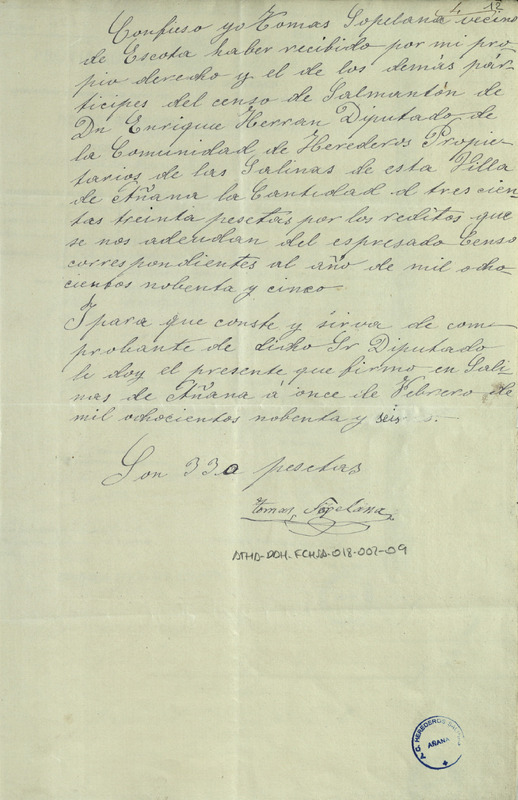 4 12
Confieso yo Tomas Sopelana vecino
de Escota haber recibido por mi pro
pio derecho y el de los demás pár-
ticipes del censo de Salmantón de
Dn Enrique Herran Diputado de
la Comunidad de Herederos Propie-
tarios de las Salinas de esta Villa
de Añana la Cantidad d trescien-
tas treinta pesetas por los reditos que
se nos adeudan del espresado Censo
correspondientes al año de mil ocho
cientos nobenta y cinco.
I para que conste y sirva de com-
probante de dicho Sr Diputado
le doy el presente que firmo en Sali
nas de Añana a once de Febrero de
mil ochocientos nobenta y seis.
Son 330 pesetas
Tomas Sopelana
ATHA-DOH-FCHSA-018-002-09
AÑANA